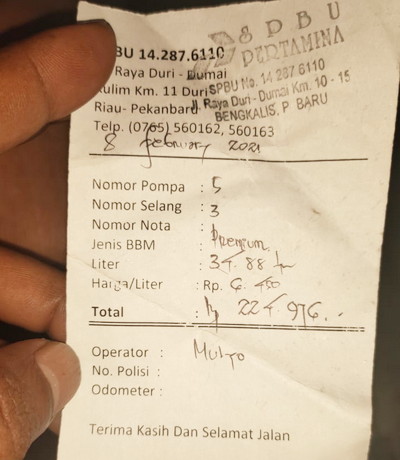 BU 14.287.6110
Raya Duri - Dumai
ulim Km. 11 Duri
Riau- Pekanbaru
Telp. (0765) 560162, 560163
SPBU
PERTAMINA
SPBU No. 14 287 6110
Jl. Raya Duri - Dumai Km. 10 - 15
BENGKALIS, P. BARU
8 february 2021
Nomor Pompa : 5
Nomor Selang : 3
Nomor Nota :
Jenis BBM : Premium
Liter : 34.88 ltr
Harga/Liter : Rp. 6.450
Total : Rp 224.976.-
Operator : Mulyo
No. Polisi :
Odometer :
Terima Kasih Dan Selamat Jalan